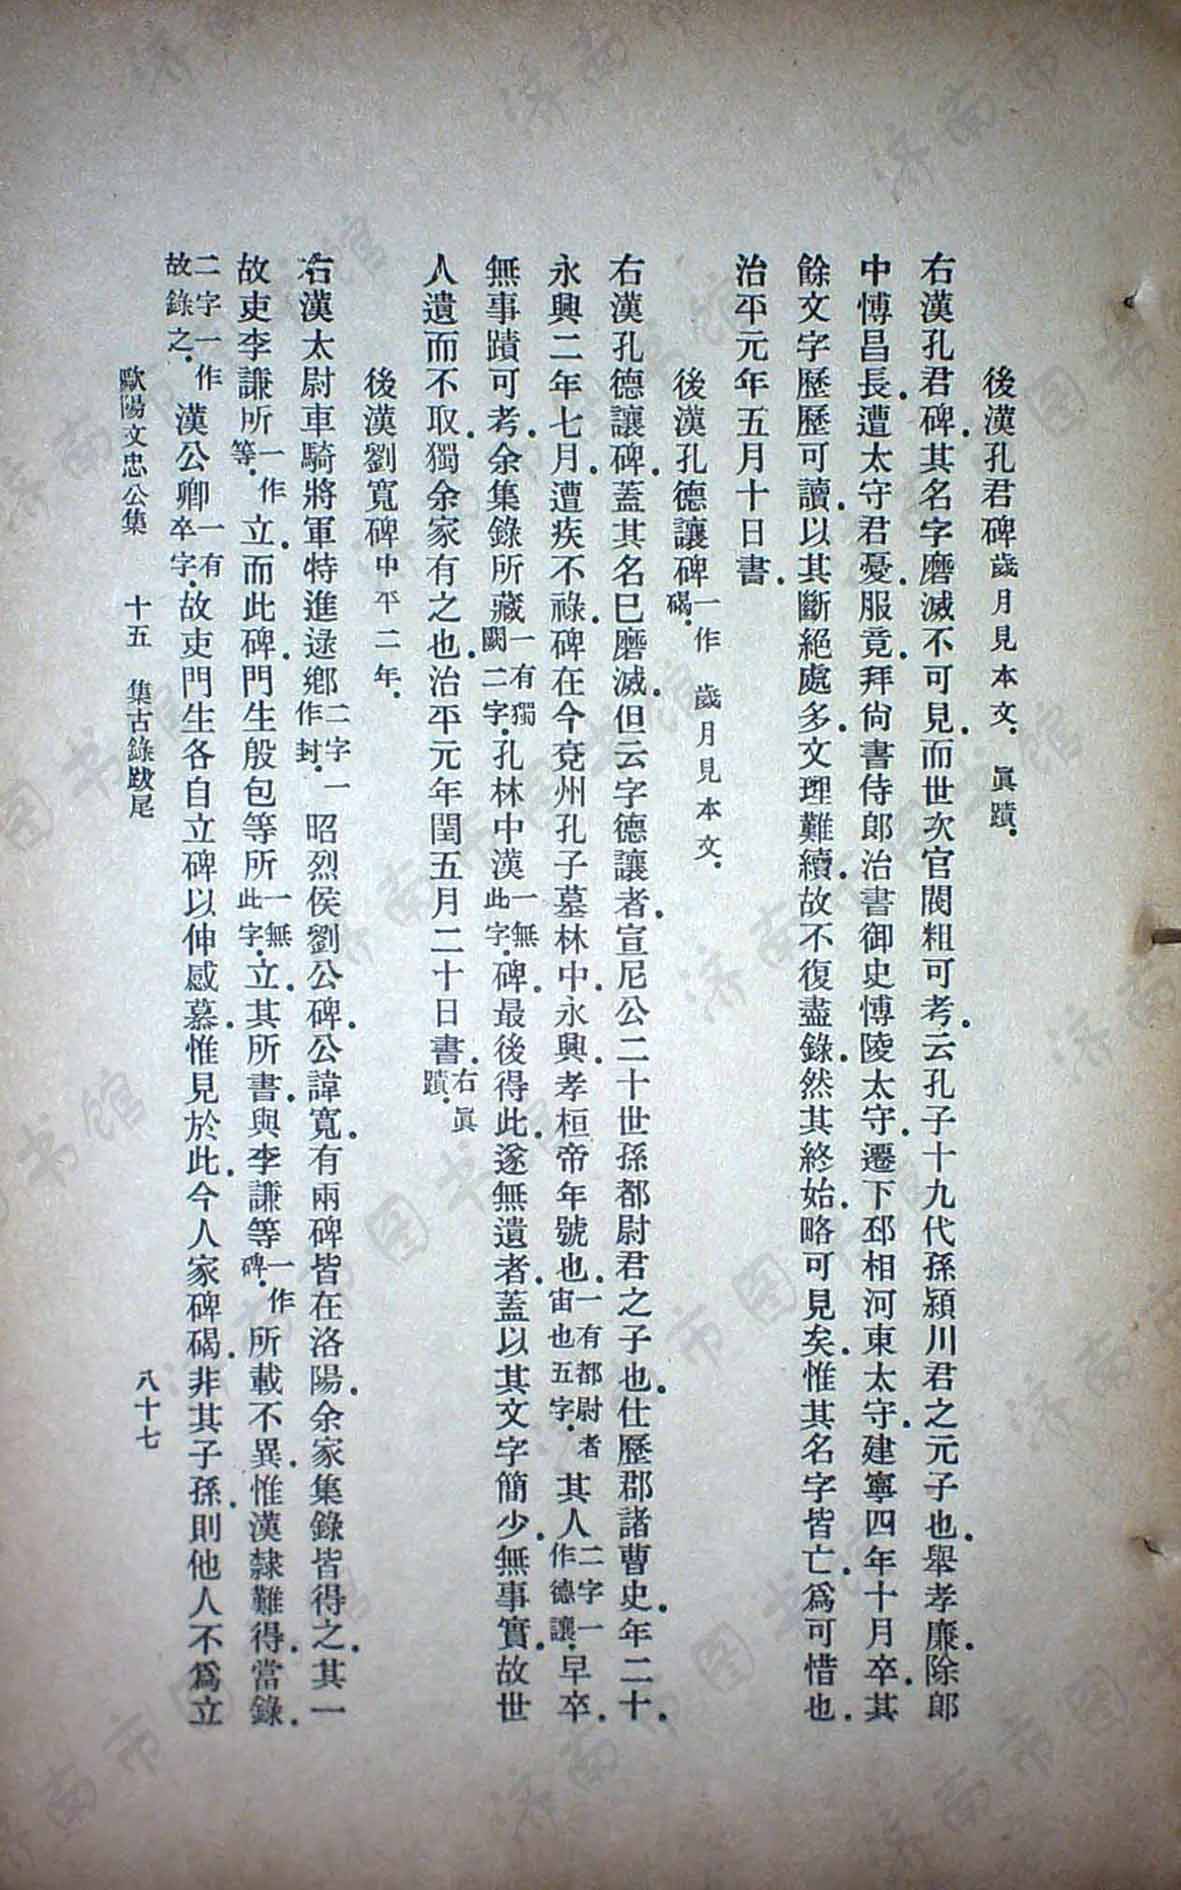 後漢孔君碑歲月見本文．眞蹟．
右漢孔君碑．其名字磨滅不可見．而世次官閥粗可考．云孔子十九代孫潁川君之元子也．舉孝廉．除郎
中博昌長．遭太守君憂．服竟．拜尙書侍郎治書御史博陵太守．遷下邳相河東太守．建寧四年十月卒．其
餘文字歷歷可讀．以其斷絕處多．文理難續．故不復盡錄．然其終始．略可見矣．惟其名字皆亡．爲可惜也．
治平元年五月十日書．
後漢孔德讓碑一作碣．歲月見本文．
右漢孔德讓碑．蓋其名已磨滅．但云字德讓者．宣尼公二十世孫都尉君之子也．仕歷郡諸曹史．年二十．
永興二年七月．遭疾不祿．碑在今兗州孔子墓林中．永興．孝桓帝年號也．一有都尉者宙也五字．其人二字一作德讓．早卒．
無事蹟可考．余集錄所藏一有獨闕二字．孔林中漢一無此字．碑．最後得此．遂無遺者．蓋以其文字簡少．無事實．故世
人遺而不取．獨余家有之也．治平元年閏五月二十日書．右眞蹟．
後漢劉寬碑中平二年．
右漢太尉車騎將軍特進逯鄉二字一作封．昭烈侯劉公碑．公諱寬．有兩碑皆在洛陽．余家集錄皆得之．其一
故吏李謙所一作等．立．而此碑．門生殷包等所一無此字．立．其所書．與李謙等一作碑．所載不異．惟漢隸難得．當錄．
二字一作故錄之．漢公卿一有卒字．故吏門生各自立碑以伸感慕．惟見於此．今人家碑碣．非其子孫．則他人不爲立
歐陽文忠公集　十五　集古錄跋尾　八十七